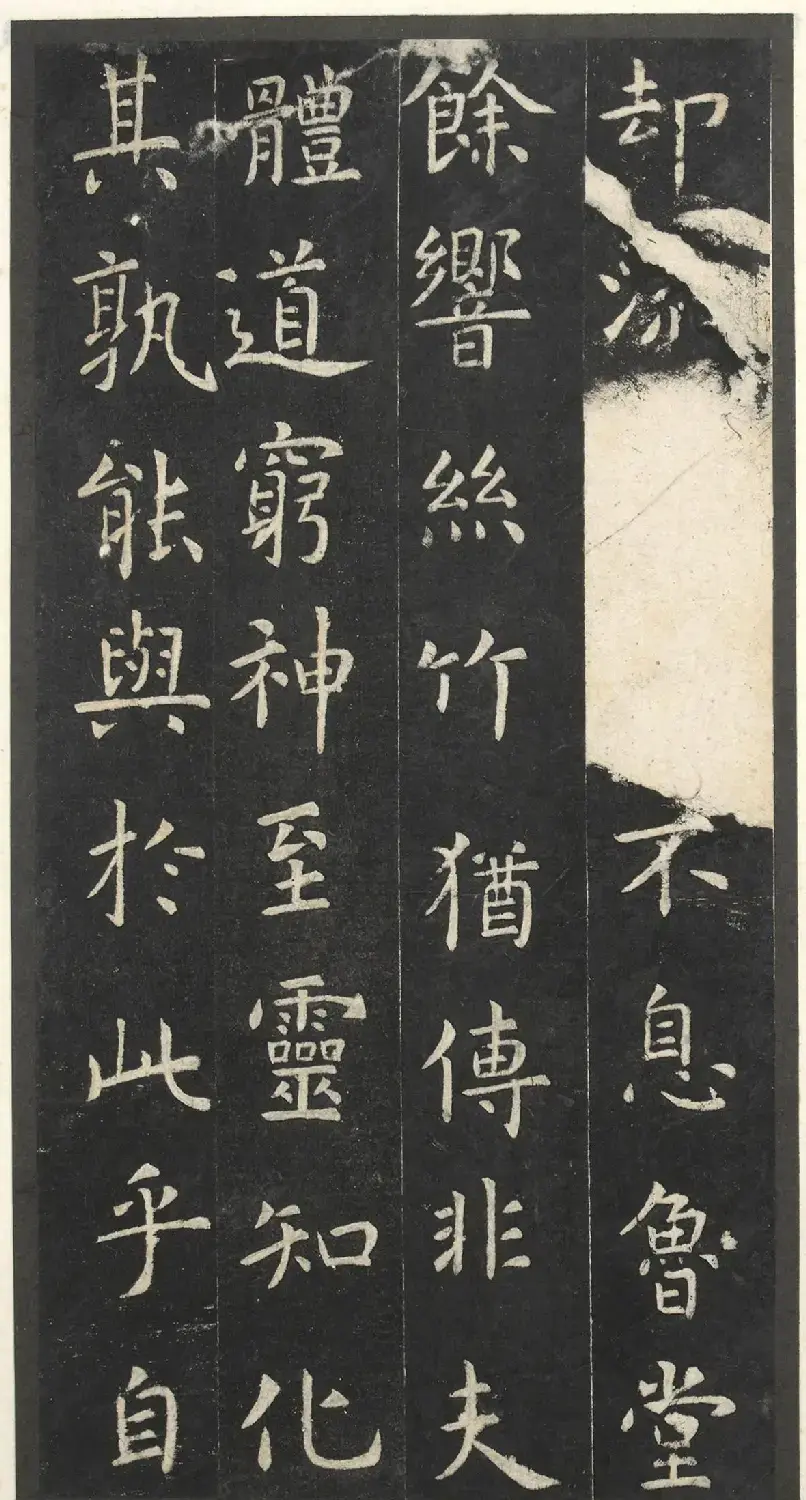 却流不息魯堂
餘響絲竹猶傳非夫
體道窮神至靈知化
其孰能與於此乎自